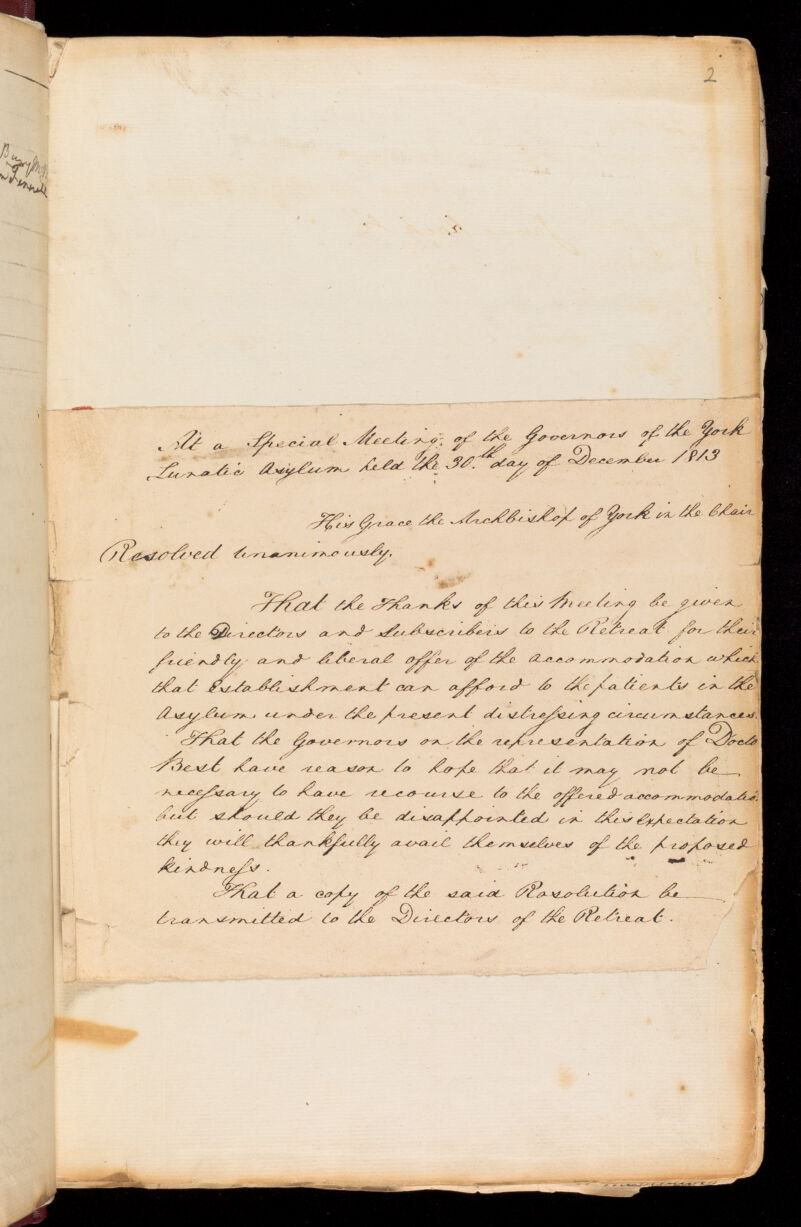 2
At a Special Meeting of the Governors of the York
Lunatic Asylum held the 30.th day of December 1813
His Grace the Archbishop of York in the Chair
Resolved Unanimously,
That the Thanks of this Meeting be given
to the Directors and Subscribers to the Retreat for their
friendly and liberal offer of the accommodation which
that Establishment can afford to the patients in the
Asylum under the present distressing circumstances.
That the Governors on the representation of Docto
Best have reason to hope that it may not be
necessary to have recourse to the offered accommodatio
but should they be disappointed in this Expectation
they will thankfully avail themselves of the proposed
kindness.
That a copy of the said Resolution be
transmitted to the Directors of the Retreat.